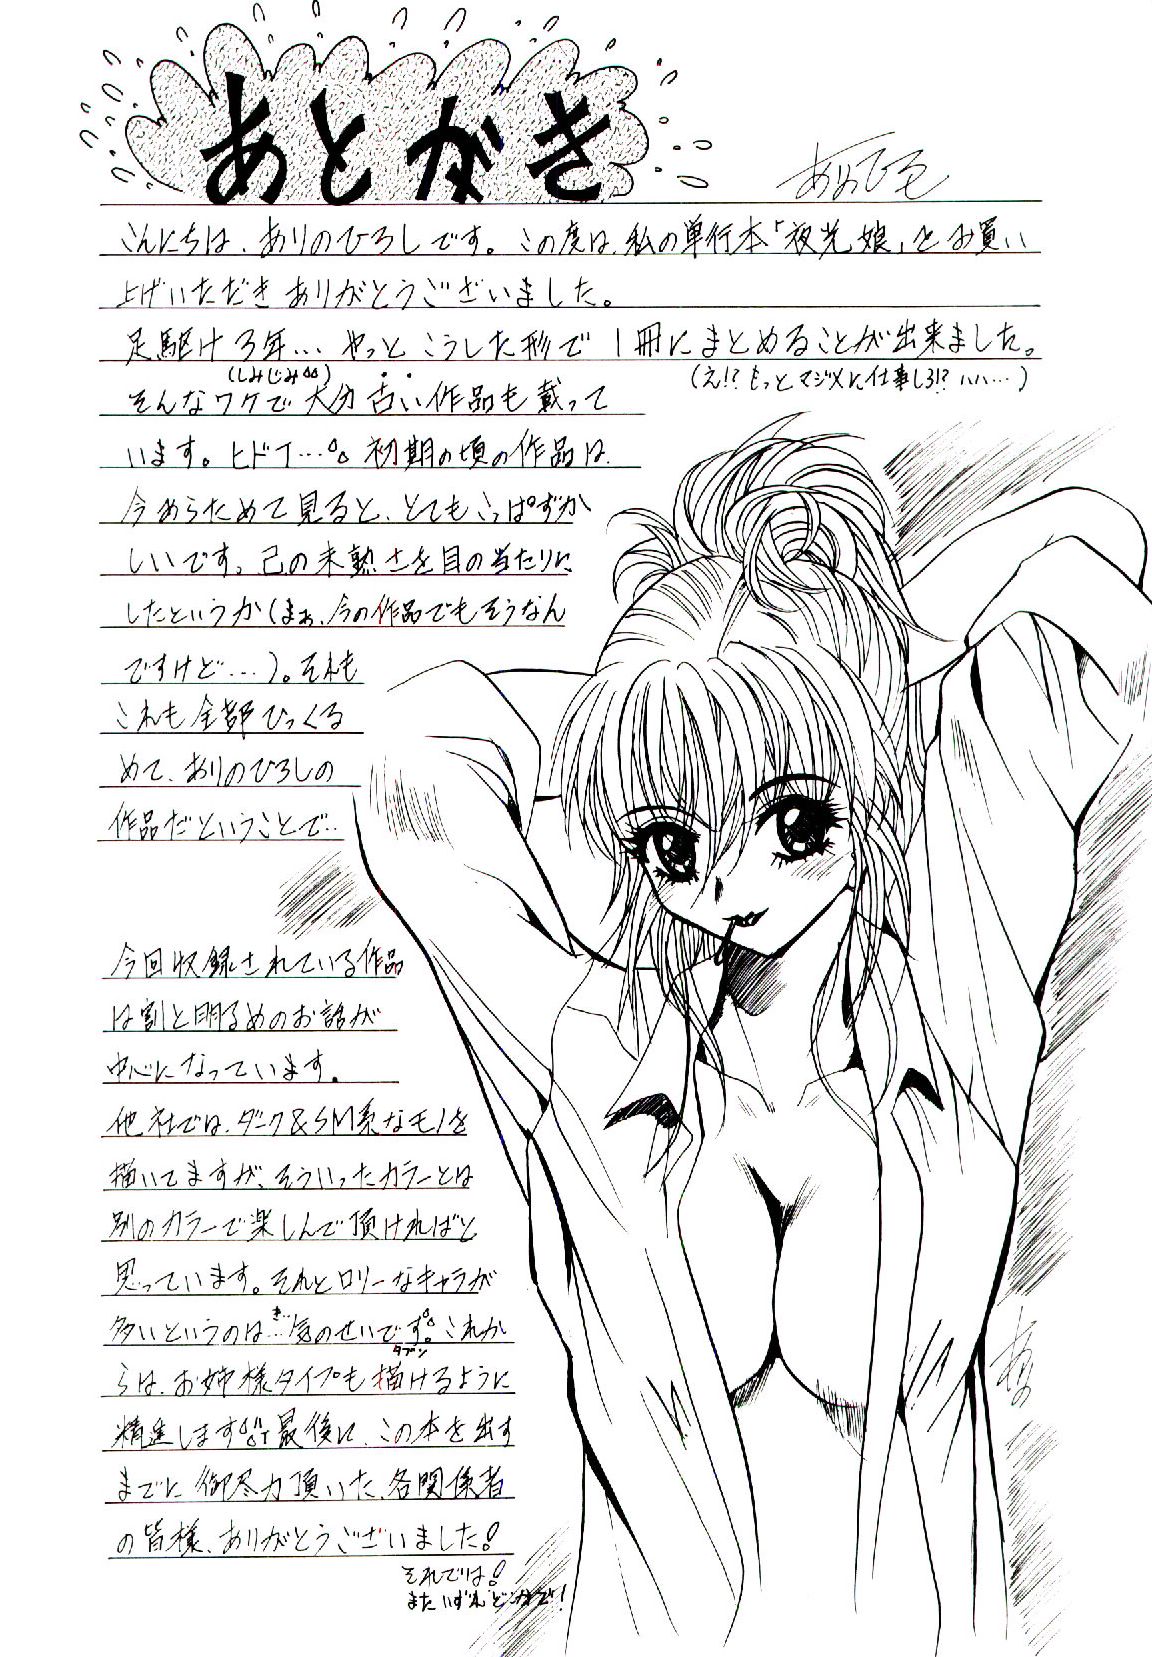 あとがき
ありのひろし
こんにちは、ありのひろしです。この度は、私の単行本「夜光娘」をお買い
上げいただきありがとうございました。
足駆け3年…やっとこうした形で1冊にまとめることが出来ました。
(しみじみ) (え!?もっとマジメに仕事しろ!?ハハ…)
そんなワケで大分古い作品も載って
います。ヒドイ…初期の頃の作品は、
今あらためて見ると、とてもこっぱずか
しいです。己の未熟さを目の当たりに
したというか(まぁ、今の作品でもそうなん
ですけど…)。それも
これも全部ひっくる
めて、ありのひろしの
作品だということで…
今回収録されている作品
は割と明るめのお話が
中心になっています。
他社では、ダーク&SM系なモノを
描いてますが、そういったカラーとは
別のカラーで楽しんで頂ければと
思っています。それとロリーなキャラが
多いというのは…き…気のせいです。これか
タブン
らは、お姉様タイプも描けるように
精進します 最後に、この本を出す
までに御尽力頂いた、各関係者
の皆様、ありがとうございました!
それでは!
またいずれどこかで!